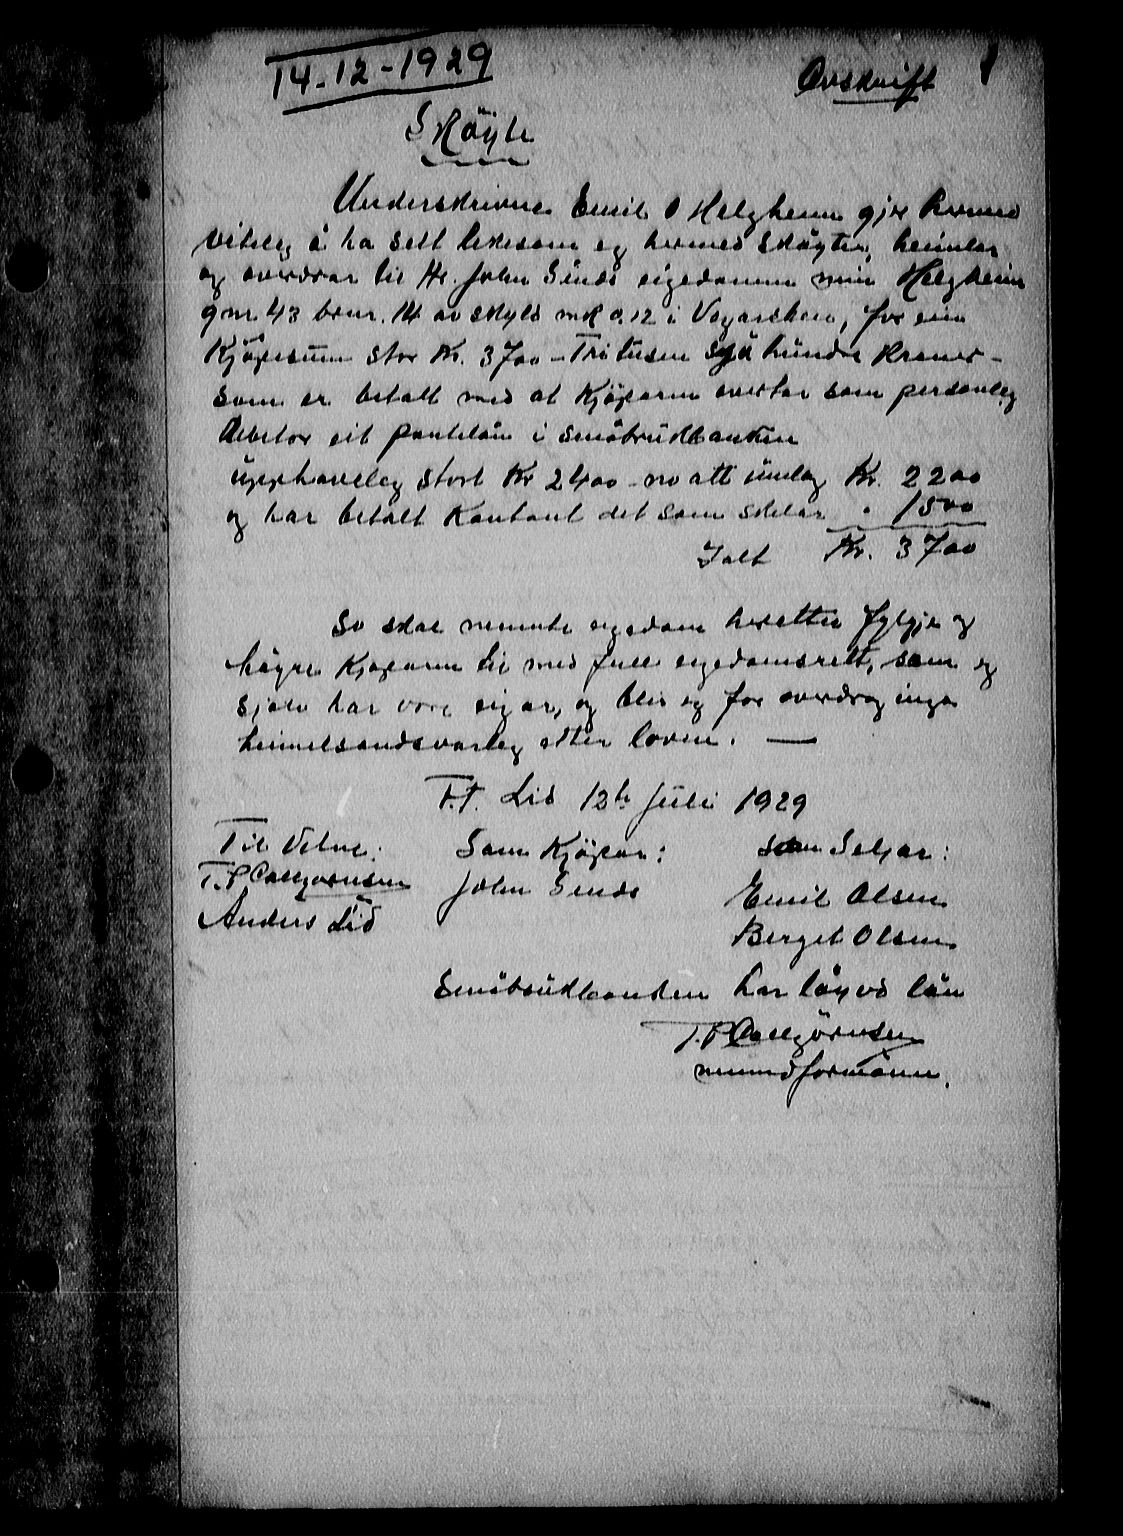 14-12-1929
Avskrift
Skøyte
Underskrivne Emil O Helgheim gjer hermed
viteleg å ha selt likesom eg hermed skøyter, heimlar
og overdrar til Hr. John Sinds eigedomen min Helgheim
gnr. 43 brnr. 14 av skyld mrk 0.12 i Vegarshei, for ein
Kjøpesum stor Kr. 3700 - Tritusen sju hundre Kroner -
som er betalt med at Kjøparen overtar som personleg
debitor eit pantelån i Småbrukbanken
upphaveleg stort Kr 2400 - no att unnlag Kr. 2200
og har betalt Kontant det som skilar " 1500
Ialt Kr. 3700
So skal nemnte eigedom heretter fylgje og
høyre Kjøparen til med full eigedomsrett, som eg
sjølv har vore eigar, og blir eg for overdraginga
heimelsandsvarleg etter loven. —
T.t. Lid 12te Juli 1929
Til Vitne:
Som Kjøpar:
som Seljar:
T. P Callgørnsen
John Sinds
Emil Olsen
Anders Lid
Bergit Olsen
Småbrukbanken har løyvd lån
T. P Callgørnsen
nemndformann.